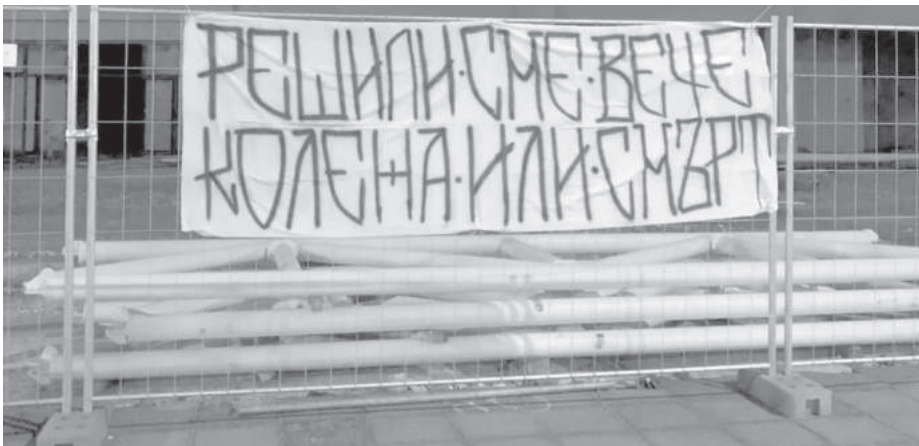 РЕШИЛИ·СМЕ·ВЕЧЕ
КОЛЕЖА·ИЛИ·СМЪРТ